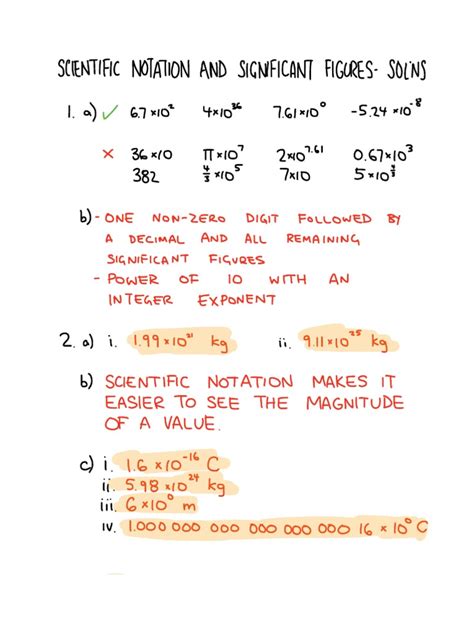 SCIENTIFIC NOTATION AND SIGNIFICANT FIGURES- SOL'NS
1. a) ✓ 6.7 ×10² 4×10³⁶ 7.61×10⁰ -5.24 ×10⁻⁸
× 36×10 π×10⁷ 2×10⁷·⁶¹ 0.67×10³
382 4/3 ×10⁵ 7×10 5×10^4/3
b) - ONE NON-ZERO DIGIT FOLLOWED BY
A DECIMAL AND ALL REMAINING
SIGNIFICANT FIGURES
- POWER OF 10 WITH AN
INTEGER EXPONENT
2. a) i. 1.99×10²¹ kg ii. 9.11×10²⁵ kg
b) SCIENTIFIC NOTATION MAKES IT
EASIER TO SEE THE MAGNITUDE
OF A VALUE.
c) i. 1.6 ×10⁻¹⁶ C
ii. 5.98 ×10²⁴ kg
iii. 6×10⁰ m
iv. 1.000 000 000 000 000 000 16 ×10⁰ C